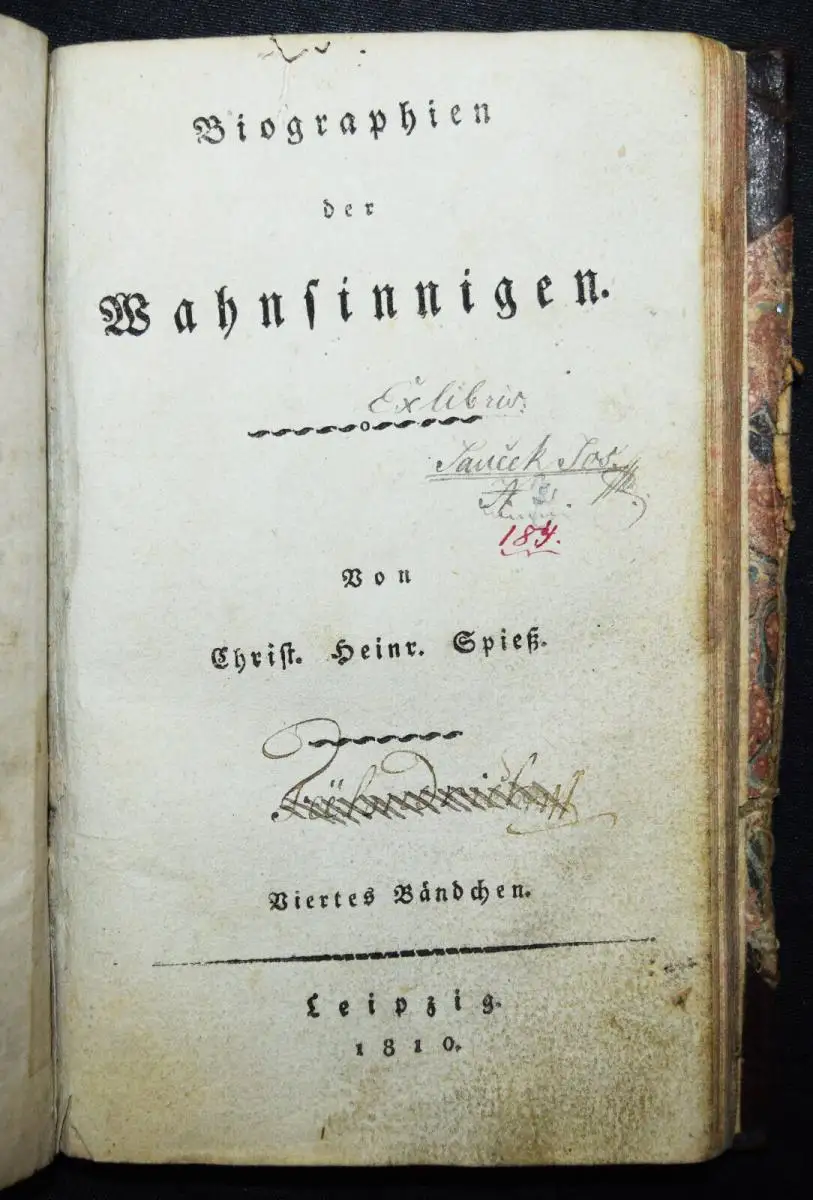 Biographien
der
Wahnſinnigen.
Exlibris.
Von
Chriſt. Heinr. Spieß.
Viertes Bändchen.
Leipzig.
1810.